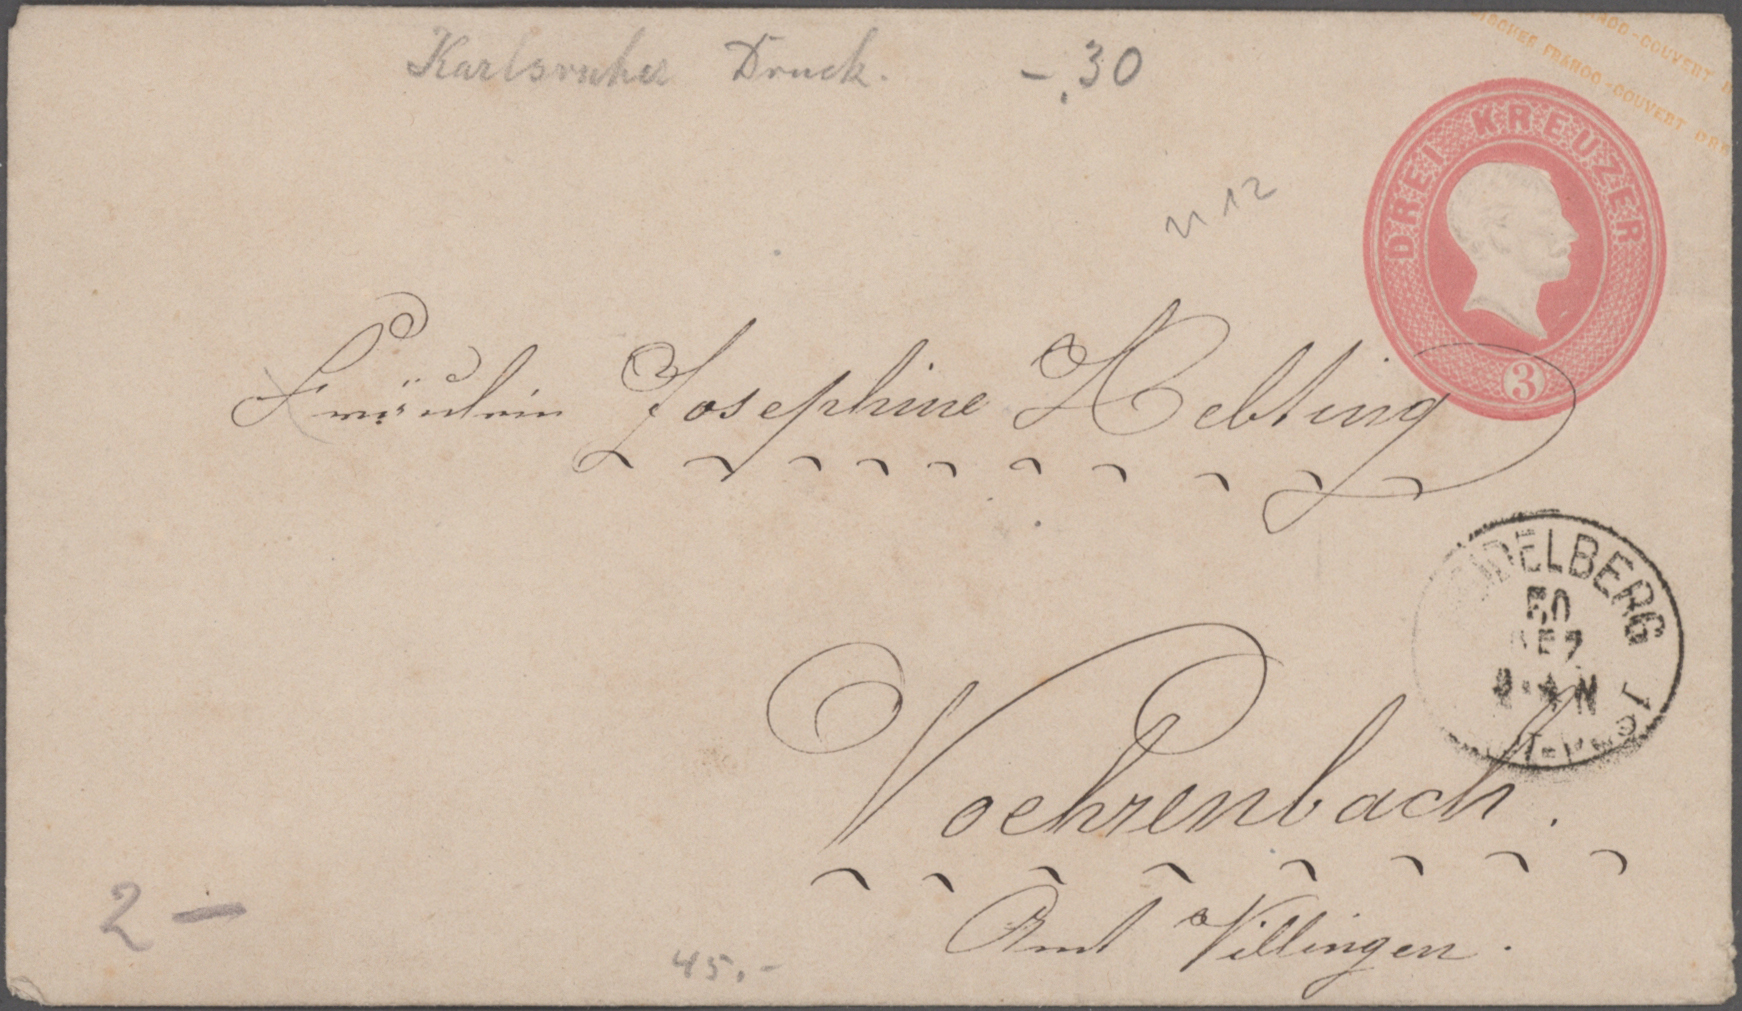 Karlsruher Druck. -.30
FRANCO-COUVERT
FRANCO-COUVERT
DREI KREUZER
3
12
Fräulein Josephine Hebting
HEIDELBERG
30
DEZ
Voehrenbach.
Amt Villingen.
2 -
45.-